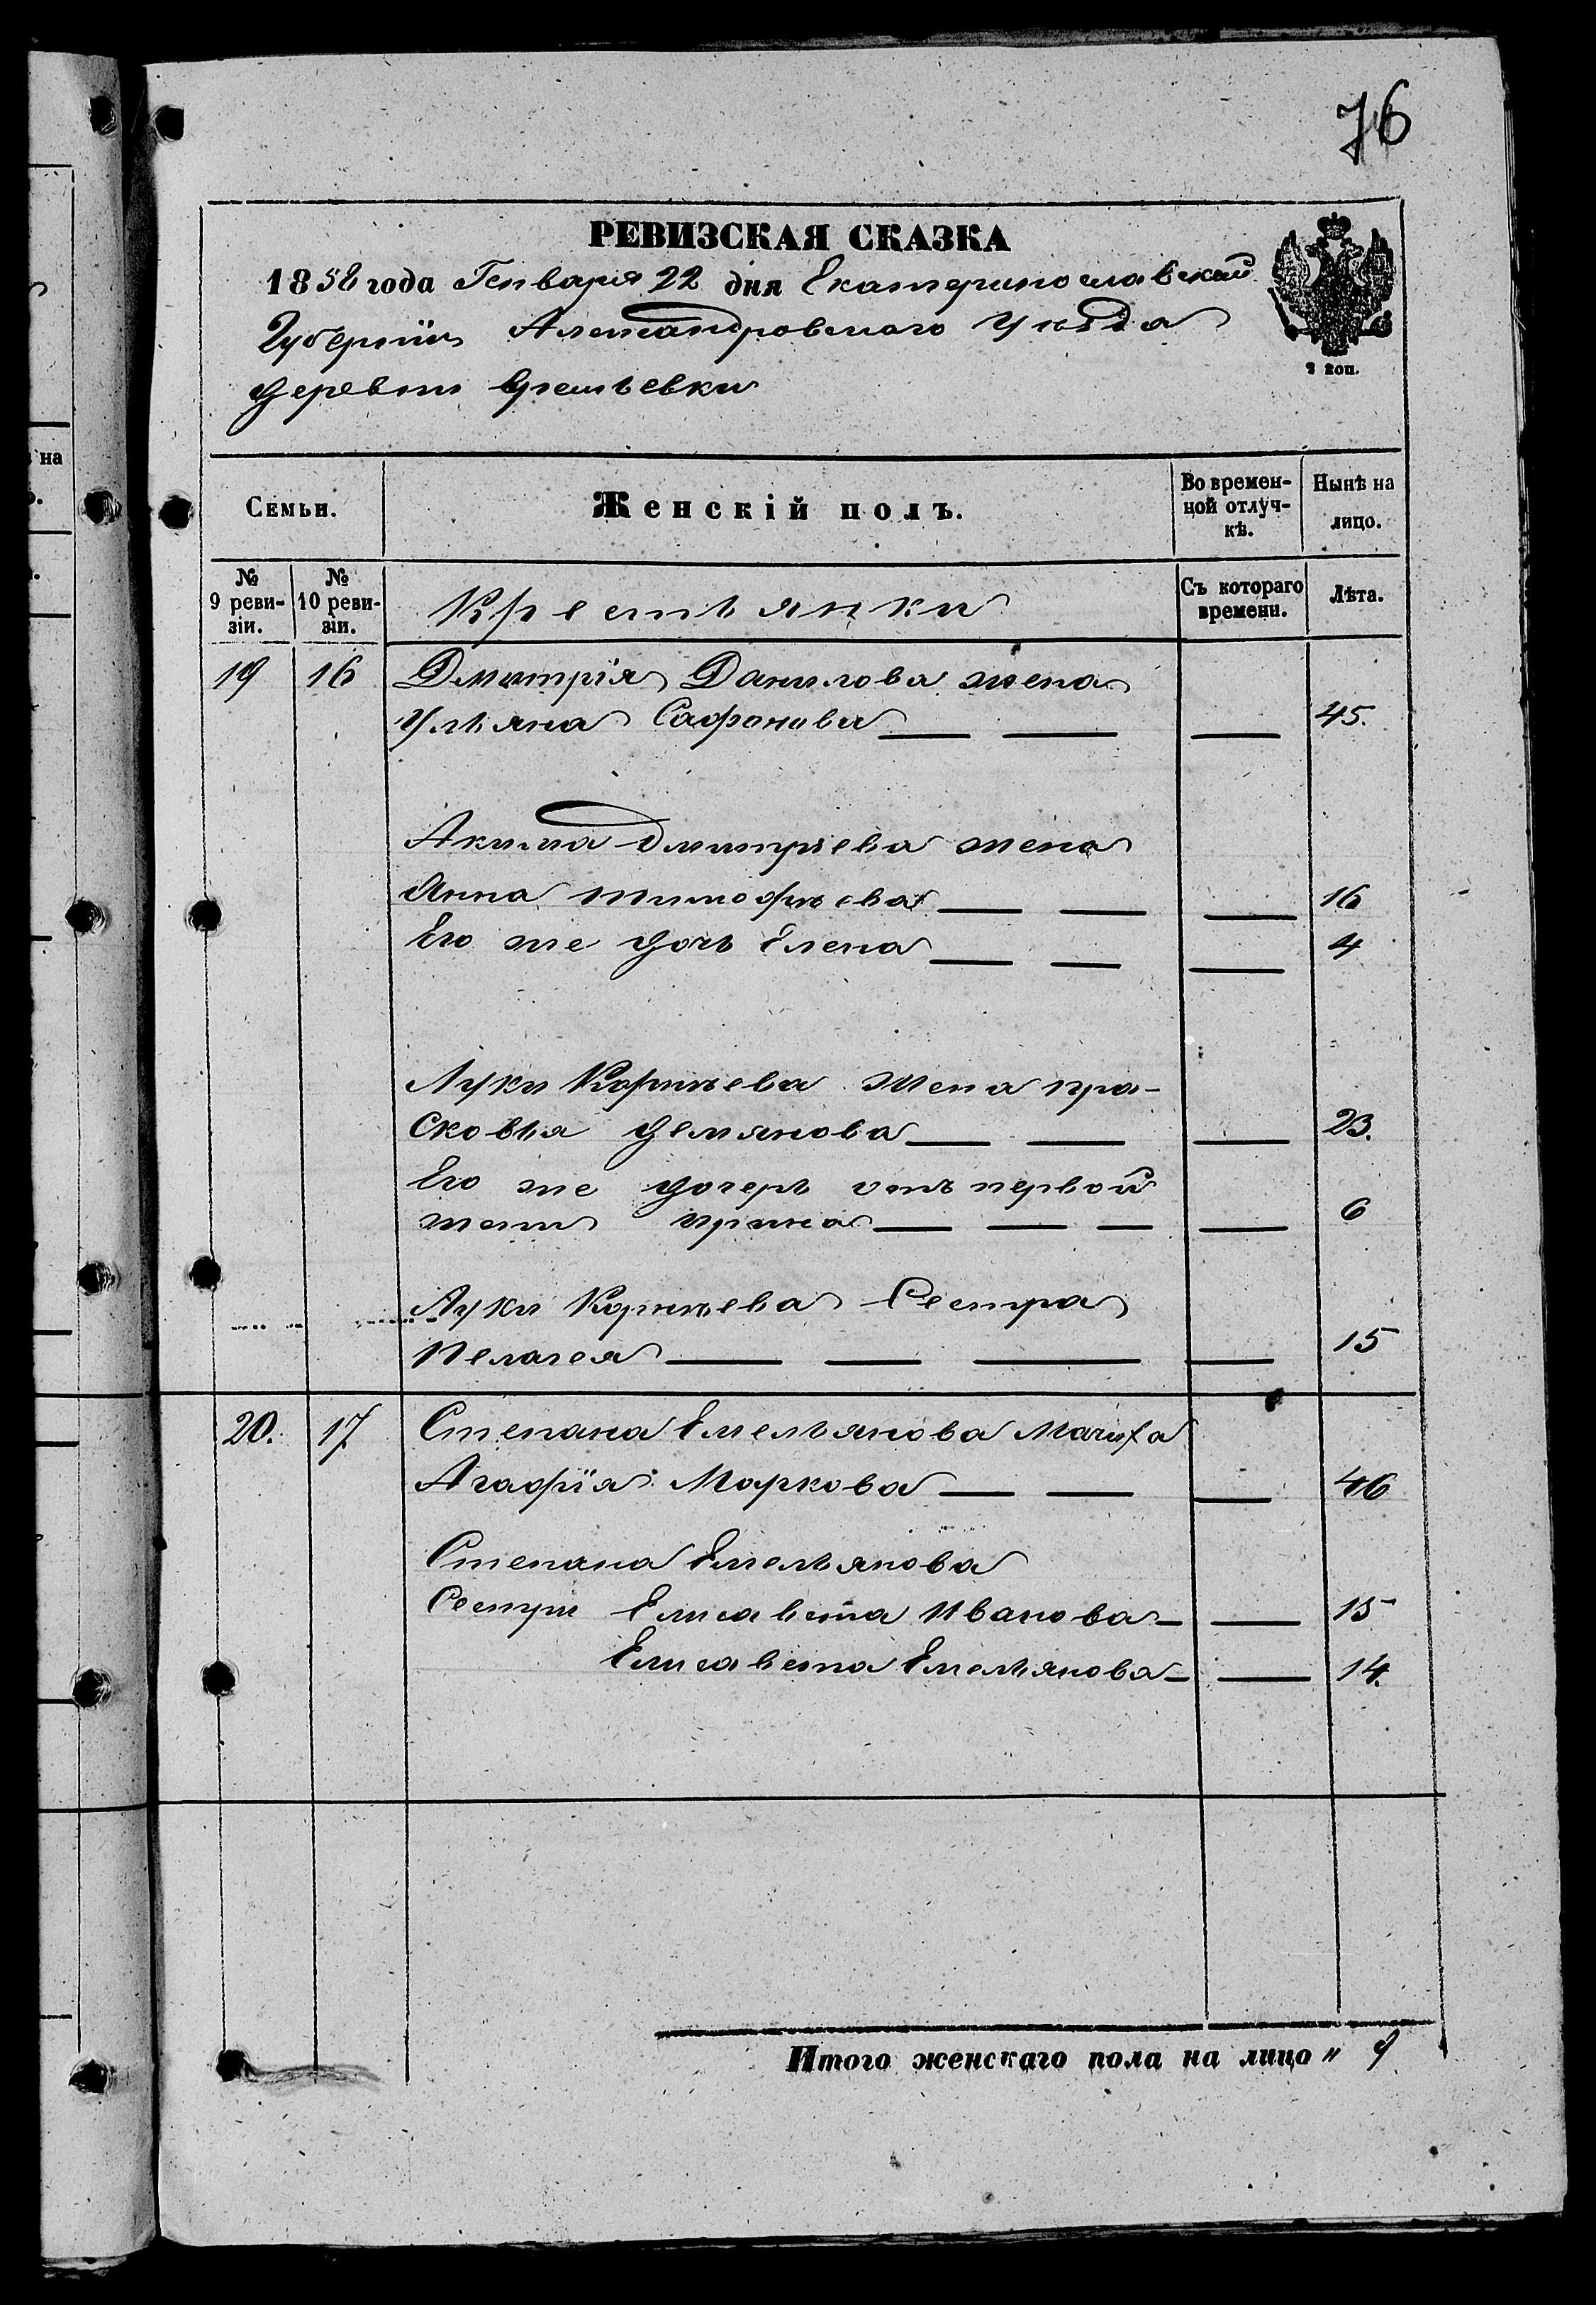 76
РЕВИЗСКАЯ СКАЗКА
1858 года Генваря 22 дня Екатеринославской
Губерніи Александровскаго уѣзда
деревни
2 коп.
на
Семьи.
Женскій полъ.
Во времен-
ной отлуч-
кѣ.
Нынѣ на
лицо.
№
9 реви-
зіи.
№
10 реви-
зіи.
Крестьянки
Съ котораго
времени.
Лѣта.
19 16 Дмитрія Данилова жена
Ульяна Сафонова — — — 45.
Акима Дмитріева жена
Анна Тимофѣева — — — 16
Его же дочь Елена — — — 4
Луки Корнѣева жена Пра-
сковья Демянова — — — 23.
Его же дочерь отъ первой
жены Ирина — — — — 6
Луки Корнѣева Сестра
Пелагея — — — — 15
20. 17 Степана Емельянова Мачиха
Агафія Маркова — — — 46
Степана Емельянова
Сестры Елисавета Иванова — — 15
Елисавета Емельянова — — 14.
Итого женскаго пола на лицо „ 9